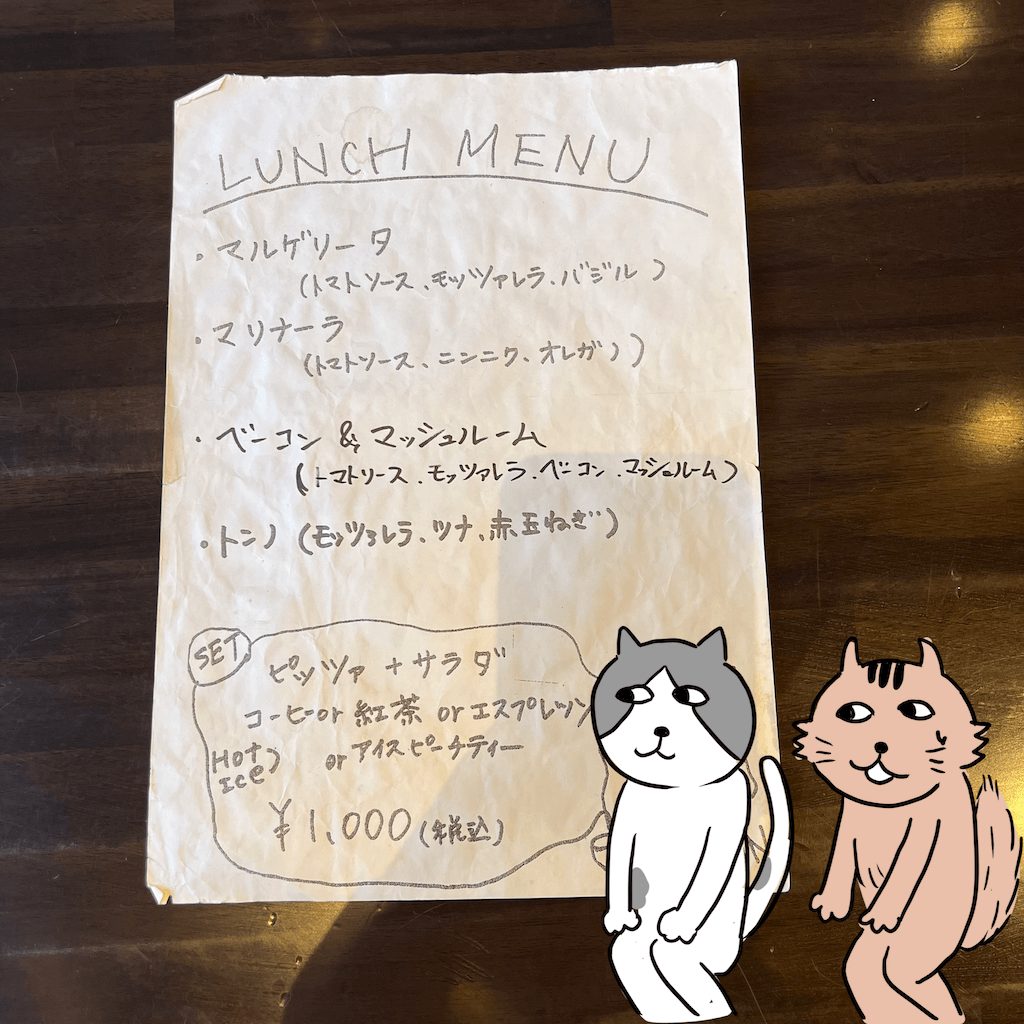 LUNCH MENU
・マルゲリータ
(トマトソース、モッツァレラ、バジル)
・マリナーラ
(トマトソース、ニンニク、オレガノ)
・ベーコン & マッシュルーム
(トマトソース、モッツァレラ、ベーコン、マッシュルーム)
・トンノ (モッツァレラ、ツナ、赤玉ねぎ)
SET
ピッツァ + サラダ
コーヒー or 紅茶 or エスプレッソ
Hot
Ice)
or アイスピーチティー
¥1,000 (税込)